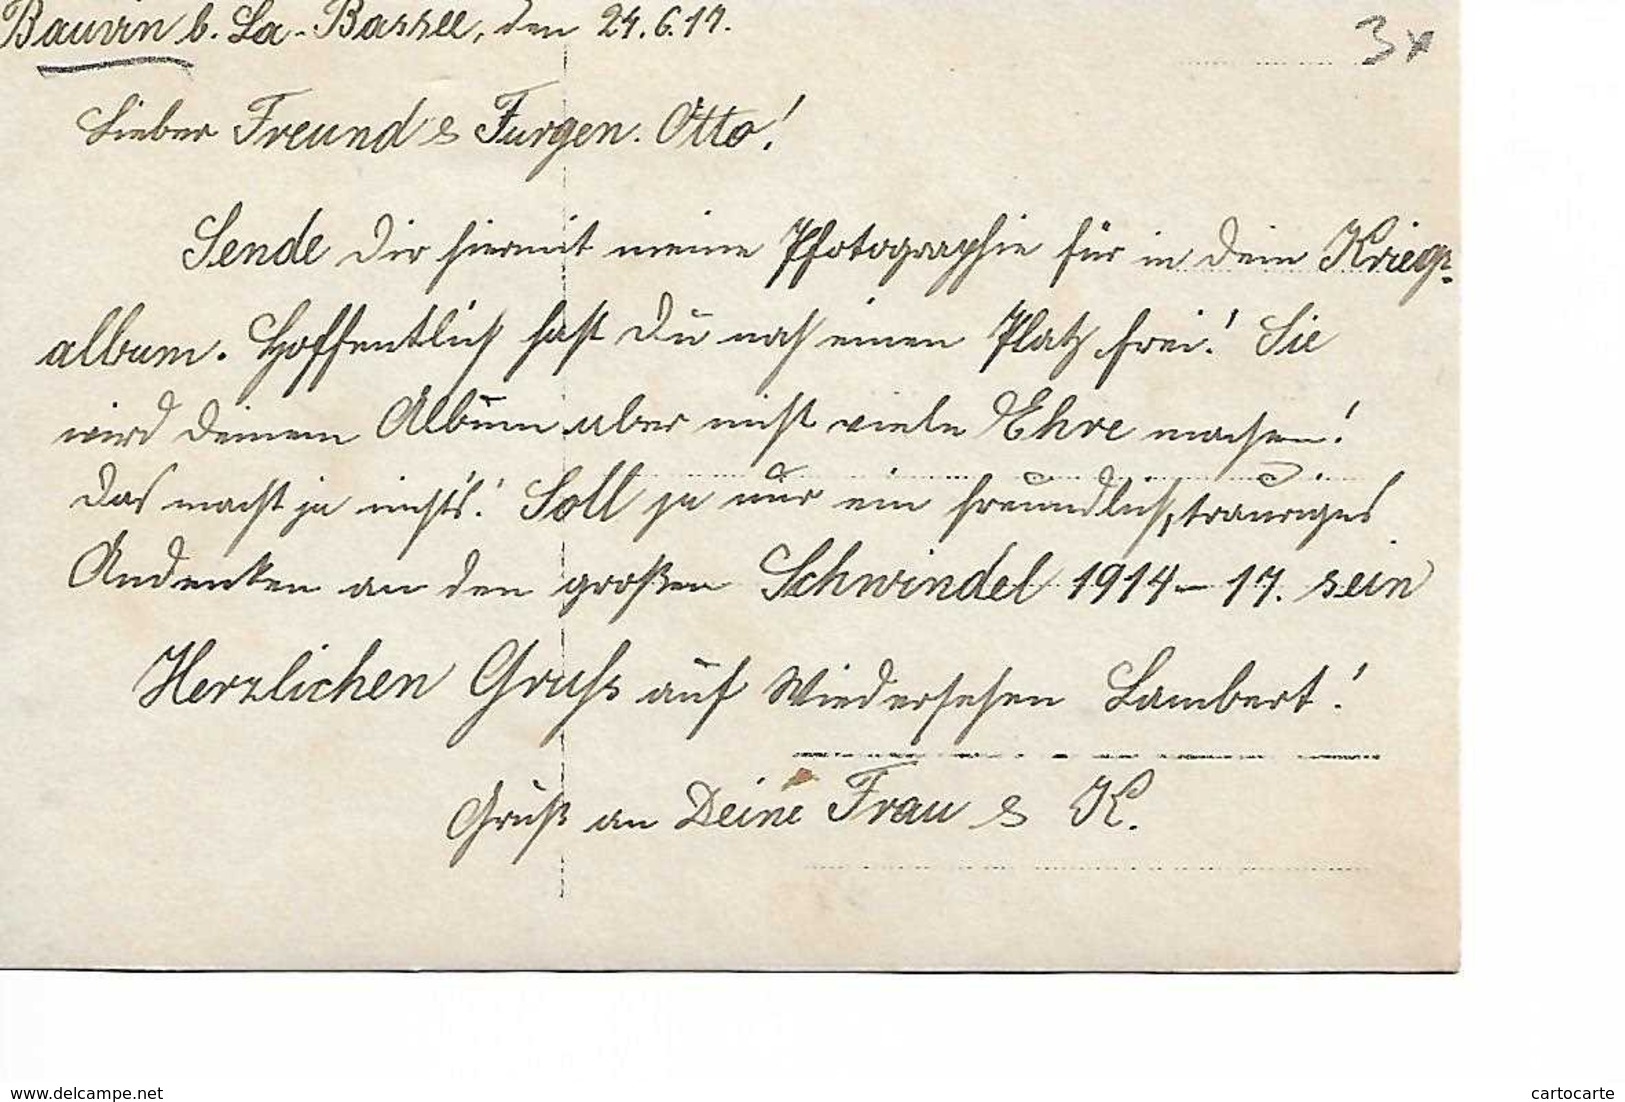 Bauvin b. La-Bassee, den 24.6.17.
3x
Lieber Freund & Jurgen. Otto!
Sende Dir hiermit meine Photographie für in dein Kriegs-
album. Hoffentlich hast Du noch einen Platz frei! Sie
wird deinem Album aber nicht viele Ehre machen!
Das macht ja nichts! Soll ja nur ein freundlich, trauriges
Andenken an den großen Schwindel 1914–17. sein
Herzlichen Gruss auf Wiedersehen Lambert!
Gruß an Deine Frau & K.
www.delcampe.net
cartocarte